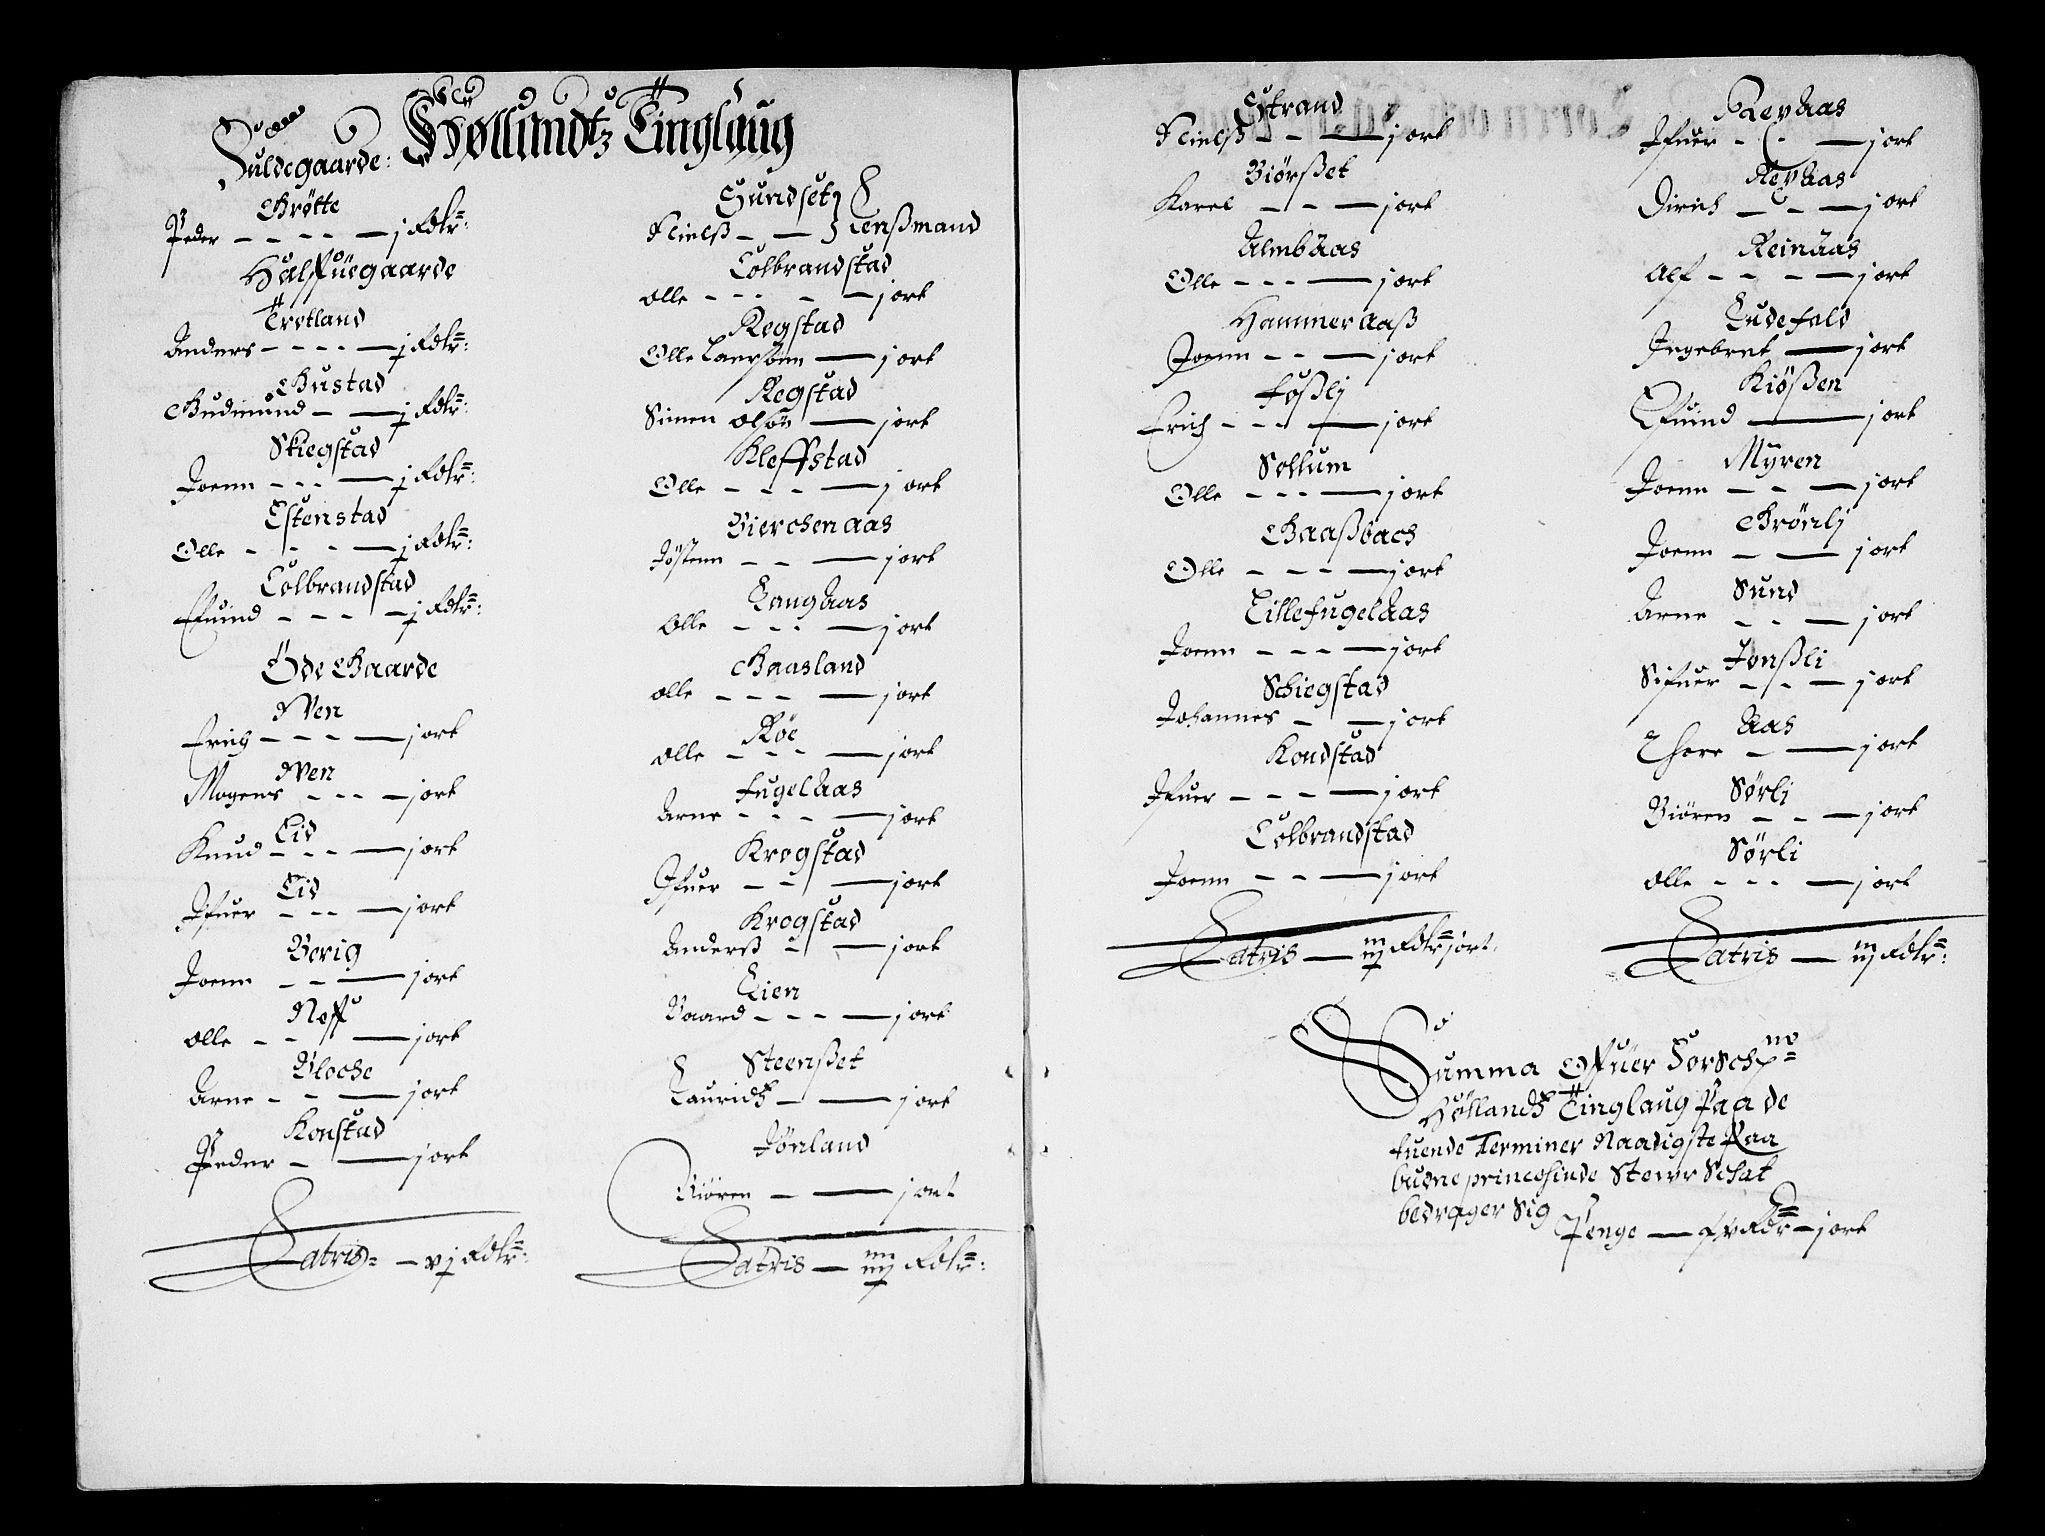 Høllandtz Tinglaug
Fuldegaarde:
Grøtte
Peder - - - - — j Rdlr:
Halffuegaarde
Tretland
Anders - - - - — j Rdlr:
Gustad
Gudmund - — j Rdlr:
Skiegstad
Joenn - - - — j Rdlr:
Estenstad
Olle - - - — j Rdlr:
Colbrandstad
Efuind - - - - j Rdlr:
Øde Gaarde
Moen
Erich - - - — j ort
Moen
Mogens - - - — j ort
Eid
Knud - - - — j ort
Eid
Ifuer - - - — j ort
Borig
Joenn - - — j ort
Noff
Olle - - — j ort
Bloche
Arne - - — j ort
Konstad
Peder - — j ort
Latris — vj Rdlr:
Sundset
Nielß - — Lenßmand
Colbrandstad
Olle - - - - — j ort
Regstad
Olle Laersönn — j ort
Regstad
Simen Olsön — j ort
Kleffstad
Olle - - - — j ort
Bierchenaas
Jöstenn - - — j ort
Langaas
Olle - - - — j ort
Gaasland
Olle - - - — j ort
Røe
Olle - - - — j ort
Fugelaas
Arne - - - — j ort
Krogstad
Ifuer - - — j ort
Krogstad
Anderß - — j ort
Lien
Baard - - - — j ort
Steenßet
Lauridtz - — j ort
Jönland
Biören - — j ort
Latris — iiij Rdlr:
Strand
Nielß - - — j ort
Biörßet
Karel - - — j ort
Almbaas
Olle - - - — j ort
Hammer aaß
Joenn - - — j ort
Foßlj
Erich - - - — j ort
Sollum
Olle - - - — j ort
Gaaßbach
Olle - - - — j ort
Lillefugelaas
Joenn - - - — j ort
Schiegstad
Johannes - — j ort
Kondstad
Ifuer - - - — j ort
Colbrandstad
Joenn - - — j ort
Latris — iij Rdlr j ort
Reyaas
Ifuer - - — j ort
Reyaas
Dirich - - — j ort
Reinaas
Alf - - - — j ort
Ludefald
Ingebret — j ort
Kiößen
Efuind — j ort
Myren
Joenn - - — j ort
Grönlj
Joenn - — j ort
Sund
Arne - - — j ort
Jonßli
Sifuer - - — j ort
Aas
Thore - — j ort
Sørli
Biören - - — j ort
Sørli
Olle - - - — j ort
Latris — iij Rdlr:
Summa Offuer Forschne
Høllandtz Tinglaug Paa de
tuende Terminer Naadigste Paa
budne princesinde Steur Schat
bedrager Sig
Penge — xv Rdr — j ort